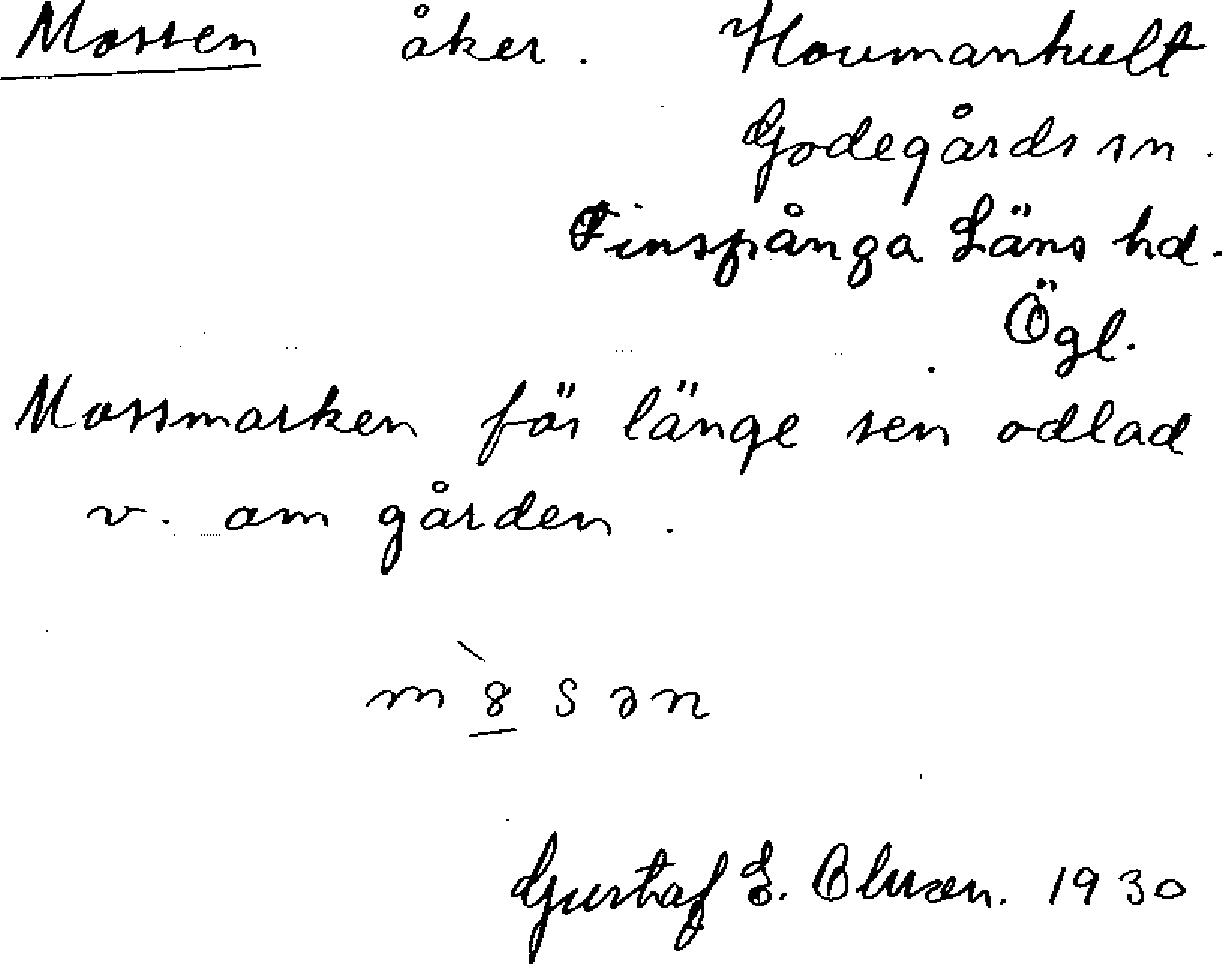 Mossen åker. Hovmanhult
Godegårds sn.
Finspånga Läns hd.
Ögl.
Mossmarken för länge sen odlad
v. om gården.
m8sən
Gustaf E. Olsson. 1930